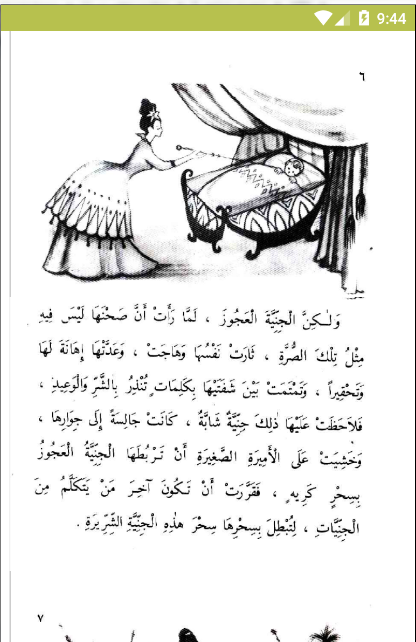 9:44
٦
وَلٰكِنَّ الْجِنِّيَّةَ الْعَجُوزَ ، لَمَّا رَأَتْ أَنَّ صَحْنَهَا لَيْسَ فِيهِ
مِثْلُ تِلْكَ الصُّرَّةِ ، ثَارَتْ نَفْسُهَا وَهَاجَتْ ، وَعَدَّتْهَا إِهَانَةً لَهَا
وَتَحْقِيراً ، وَتَمْتَمَتْ بَيْنَ شَفَتَيْهَا بِكَلِمَاتٍ تُنْذِرُ بِالشَّرِّ وَالْوَعِيدِ ،
فَلَاحَظَتْ عَلَيْهَا ذٰلِكَ جِنِّيَّةٌ شَابَّةٌ ، كَانَتْ جَالِسَةً إِلَى جِوَارِهَا ،
وَخَشِيَتْ عَلَى الْأَمِيرَةِ الصَّغِيرَةِ أَنْ تَرْبُطَهَا الْجِنِّيَّةُ الْعَجُوزُ
بِسِحْرٍ كَرِيهٍ ، فَقَرَّرَتْ أَنْ تَكُونَ آخِرَ مَنْ يَتَكَلَّمُ مِنَ
الْجِنِّيَّاتِ ، لِتُبْطِلَ بِسِحْرِهَا سِحْرَ هٰذِهِ الْجِنِّيَّةِ الشِّرِّيرَةِ .
٧